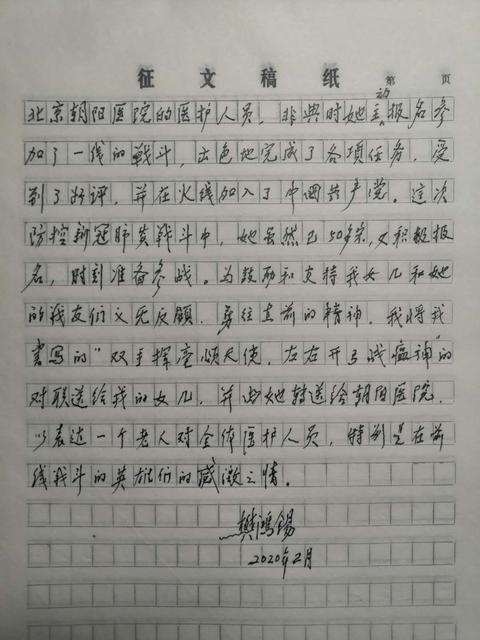 征文稿纸 第 页
北京朝阳医院的医护人员，非典时她主动报名参
加了一线的战斗，出色地完成了各项任务，受
到了好评，并在火线加入了中国共产党。这次
防控新冠肺炎战斗中，她虽然已50多岁，又积极报
名，时刻准备参战。为鼓励和支持我女儿和她
的战友们义无反顾、勇往直前的精神，我将我
书写的“双手挥毫颂天使，左右开弓战瘟神”的
对联送给我的女儿，并由她转送给朝阳医院，
以表达一个老人对全体医护人员，特别是在前
线战斗的英雄们的感激之情。
樊鸿锡
2020年2月